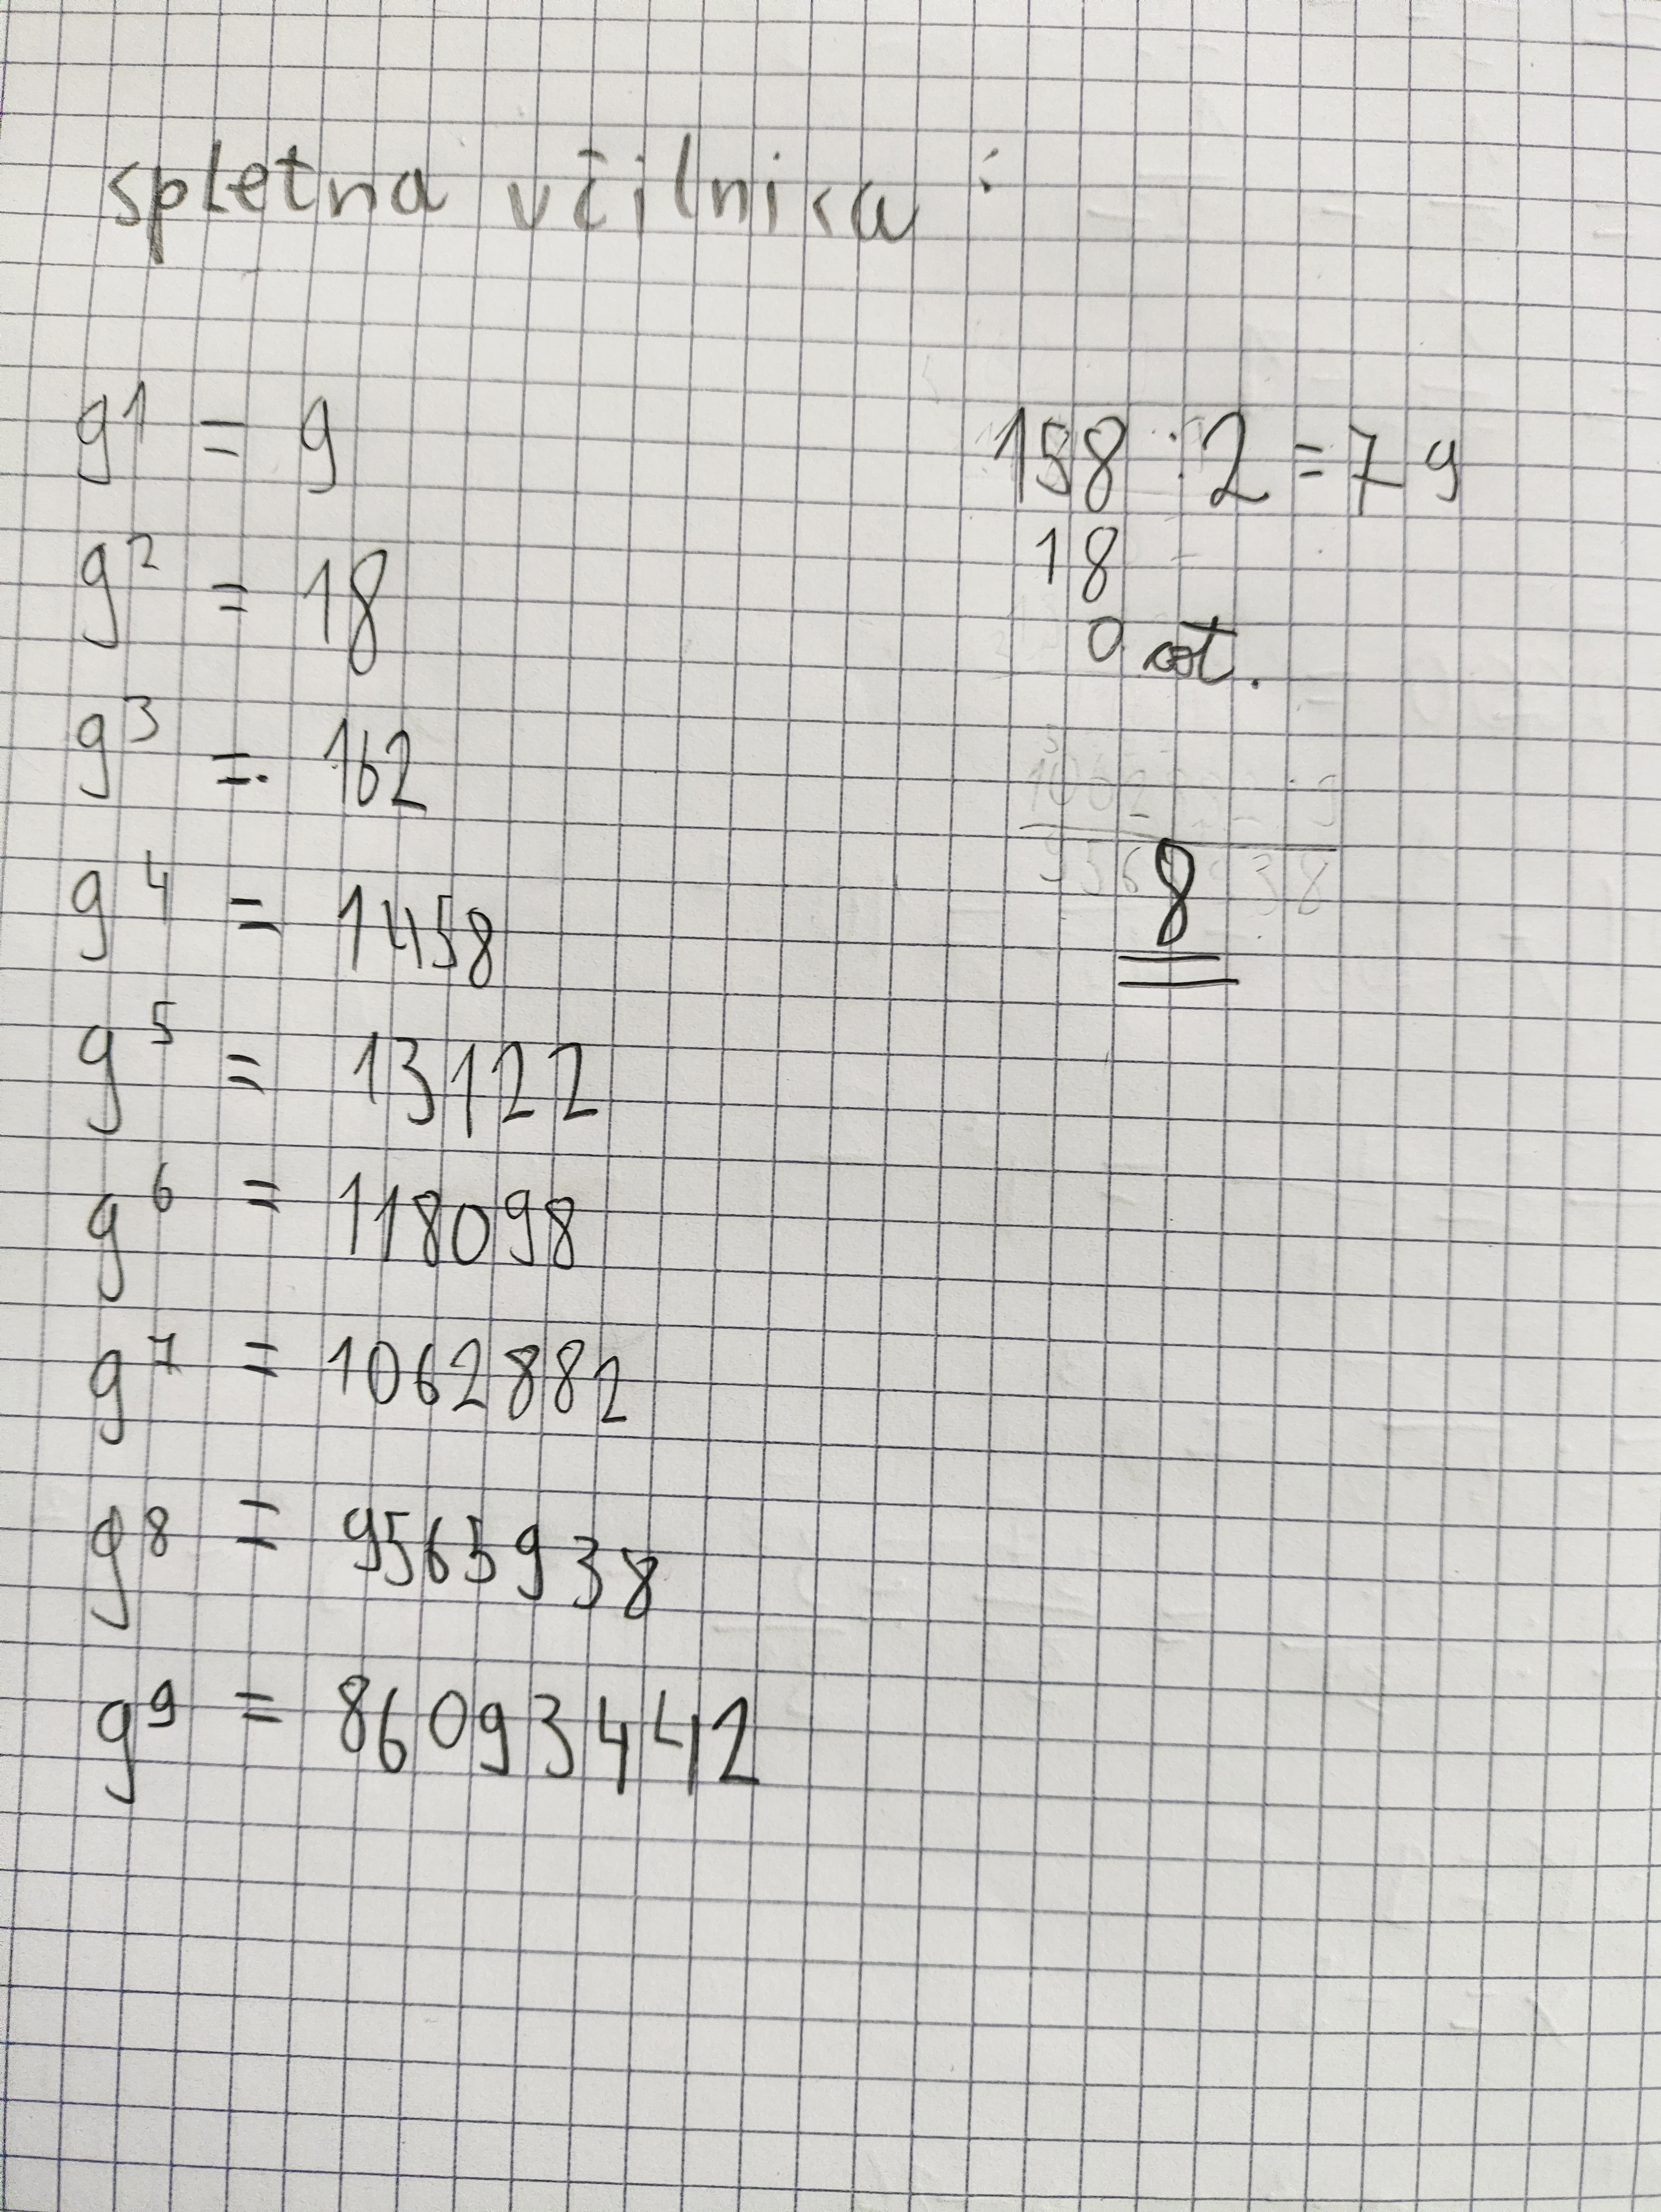 spletna učilnica:
9¹ = 9
9² = 18
9³ = 162
9⁴ = 1458
9⁵ = 13122
9⁶ = 118098
9⁷ = 1062882
9⁸ = 9565938
9⁹ = 86093442
158 : 2 = 79
18
0 ost.
8